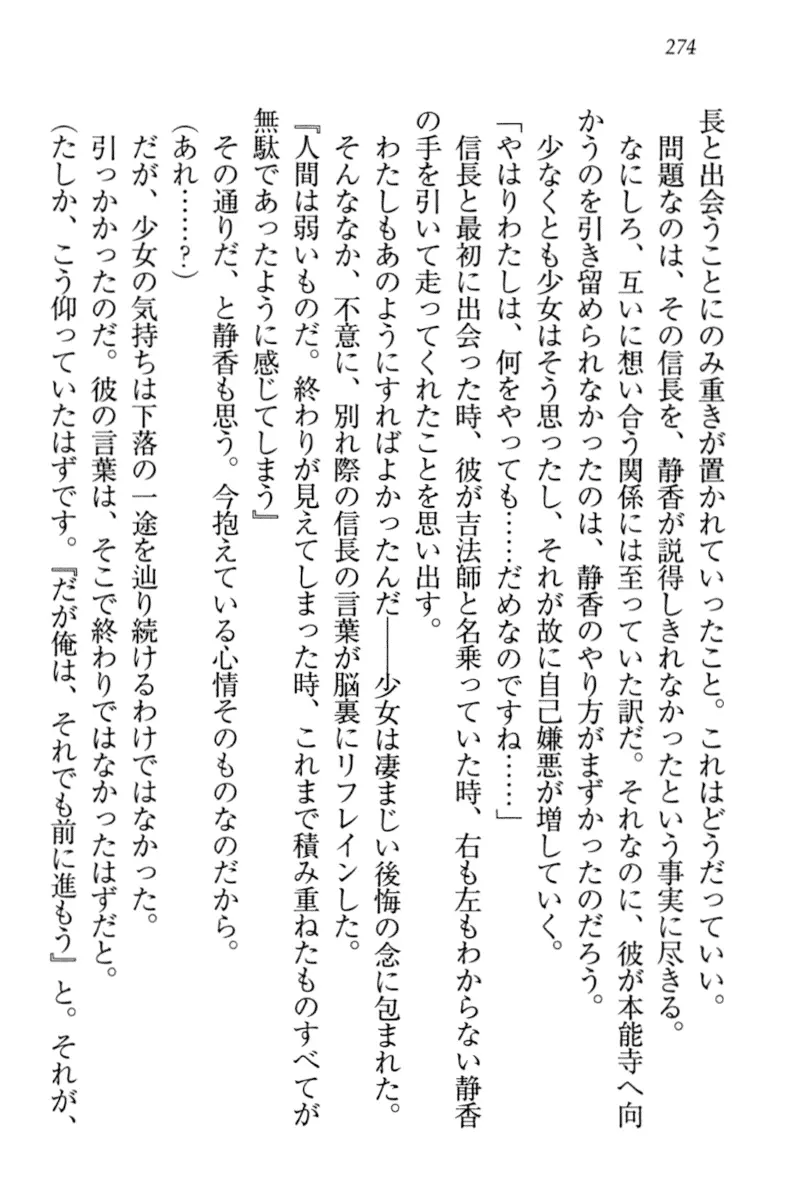 274
長と出会うことにのみ重きが置かれていったこと。これはどうだっていい。
問題なのは、その信長を、静香が説得しきれなかったという事実に尽きる。
なにしろ、互いに想い合う関係には至っていた訳だ。それなのに、彼が本能寺へ向
かうのを引き留められなかったのは、静香のやり方がまずかったのだろう。
少なくとも少女はそう思ったし、それが故に自己嫌悪が増していく。
「やはりわたしは、何をやっても……だめなのですね……」
信長と最初に出会った時、彼が吉法師と名乗っていた時、右も左もわからない静香
の手を引いて走ってくれたことを思い出す。
わたしもあのようにすればよかったんだ――少女は凄まじい後悔の念に包まれた。
そんななか、不意に、別れ際の信長の言葉が脳裏にリフレインした。
『人間は弱いものだ。終わりが見えてしまった時、これまで積み重ねたものすべてが
無駄であったように感じてしまう』
その通りだ、と静香も思う。今抱えている心情そのものなのだから。
（あれ……？）
だが、少女の気持ちは下落の一途を辿り続けるわけではなかった。
引っかかったのだ。彼の言葉は、そこで終わりではなかったはずだと。
（たしか、こう仰っていたはずです。『だが俺は、それでも前に進もう』と。それが、